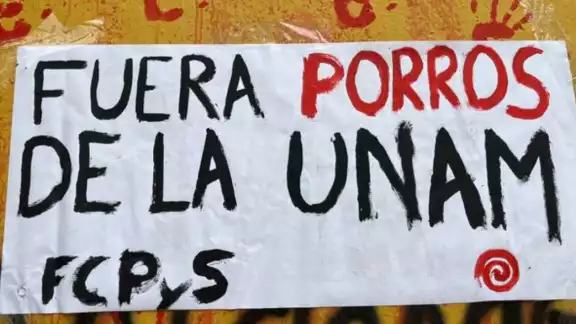 FUERA PORROS
DE LA UNAM
FCPyS